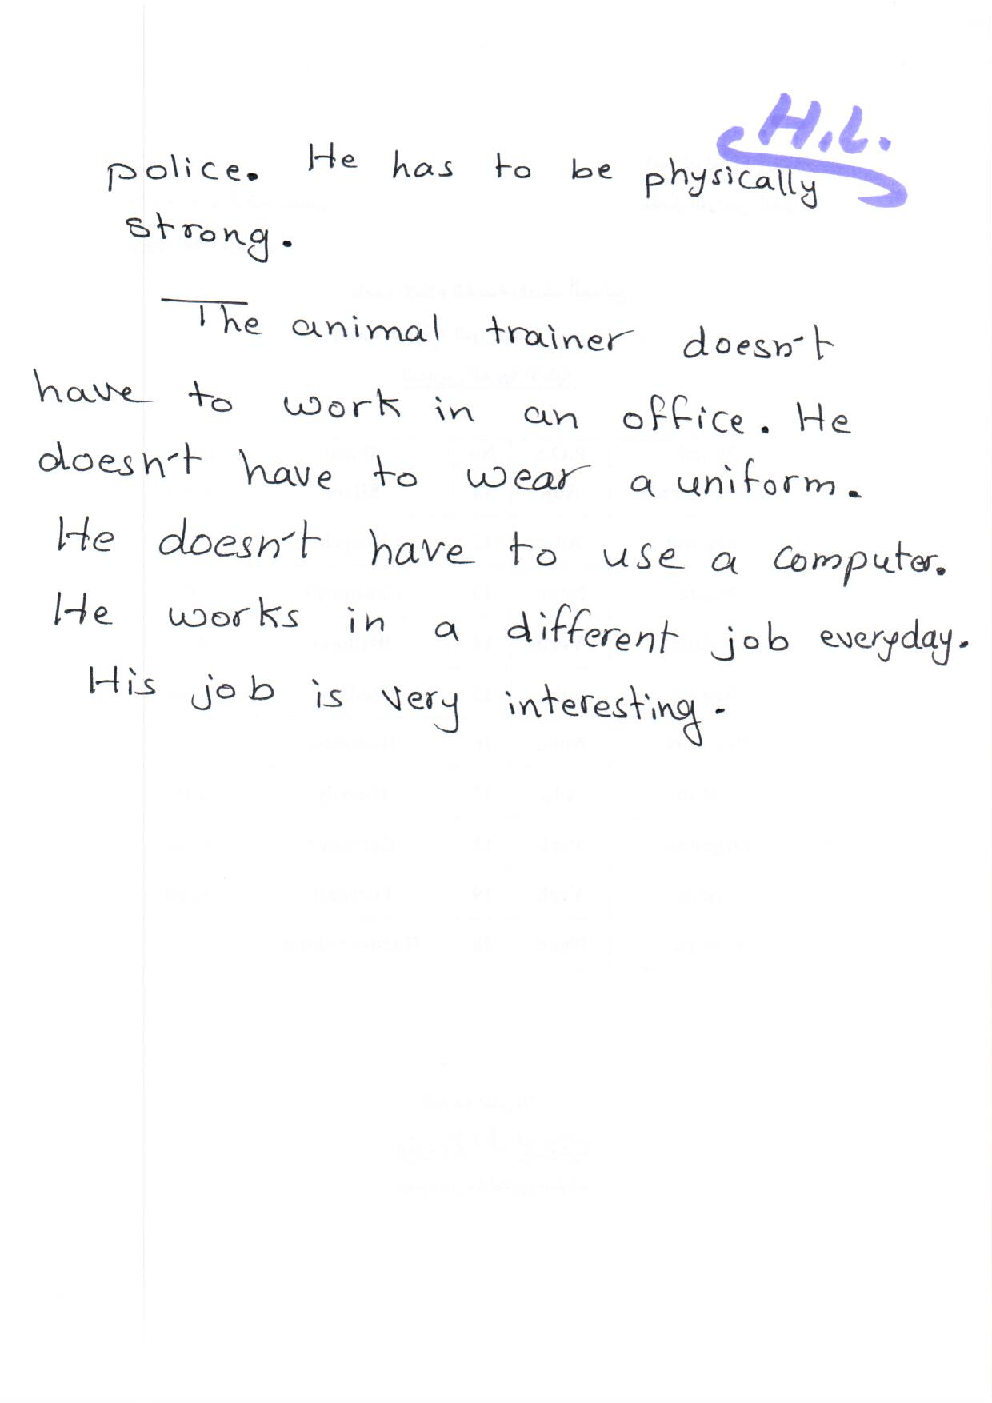 H.L.
police. He has to be physically
strong.
The animal trainer doesn't
have to work in an office. He
doesn't have to wear a uniform.
He doesn't have to use a computer.
He works in a different job everyday.
His job is very interesting.